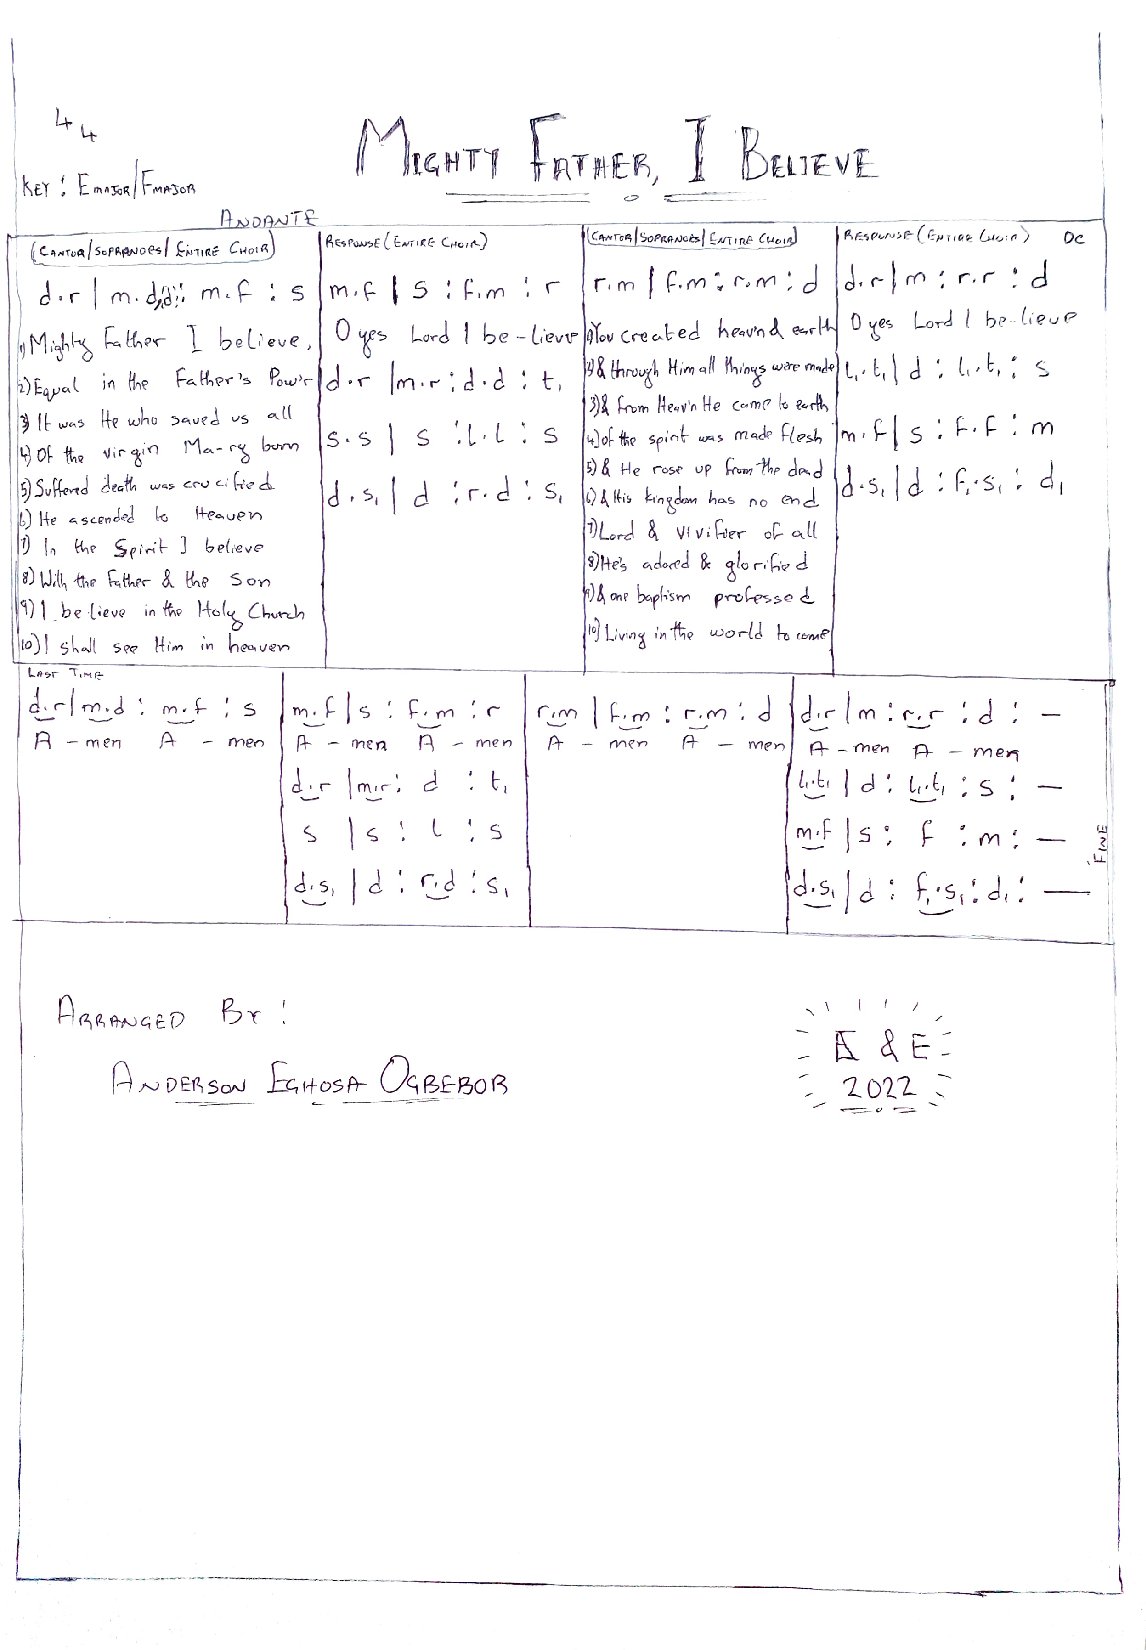 4
4
MIGHTY FATHER, I BELIEVE
KEY : E MAJOR/F MAJOR
ANDANTE
(CANTOR/SOPRANOES/ENTIRE CHOIR)
d.r | m.d,d: m.f : s
1) Mighty Father I believe,
2) Equal in the Father's Pow'r
3) It was He who saved us all
4) Of the virgin Ma-ry born
5) Suffered death was crucified
6) He ascended to Heaven
7) In the Spirit I believe
8) With the Father & the Son
9) I believe in the Holy Church
10) I shall see Him in heaven
RESPONSE (ENTIRE CHOIR)
m.f | s : f.m : r
O yes Lord I be-lieve
d.r | m.r : d.d : t₁
s.s | s : l.l : s
d.s₁ | d : r.d : s₁
(CANTOR/SOPRANOES/ENTIRE CHOIR)
r.m | f.m : r.m : d
1) You created heav'n & earth
2) & through Him all things were made
3) & from Heav'n He came to earth
4) of the spirit was made flesh
5) & He rose up from the dead
6) & His kingdom has no end
7) Lord & vivifier of all
8) He's adored & glorified
9) & one baptism professed
10) Living in the world to come
RESPONSE (ENTIRE CHOIR) DC
d.r | m : r.r : d
O yes Lord I be-lieve
l₁.t₁ | d : l₁.t₁ : s
m.f | s : f.f : m
d.s₁ | d : f₁.s₁ : d₁
LAST TIME
d.r | m.d : m.f : s
A - men A - men
m.f | s : f.m : r
A - men A - men
d.r | m.r : d : t₁
s | s : l : s
d.s₁ | d : r.d : s₁
r.m | f.m : r.m : d
A - men A - men
d.r | m : r.r : d : —
A - men A - men
l₁.t₁ | d : l₁.t₁ : s : —
m.f | s : f : m : —
d.s₁ | d : f₁.s₁ : d₁ : —
FINE
ARRANGED BY :
ANDERSON EGHOSA OGBEBOR
E & E
2022